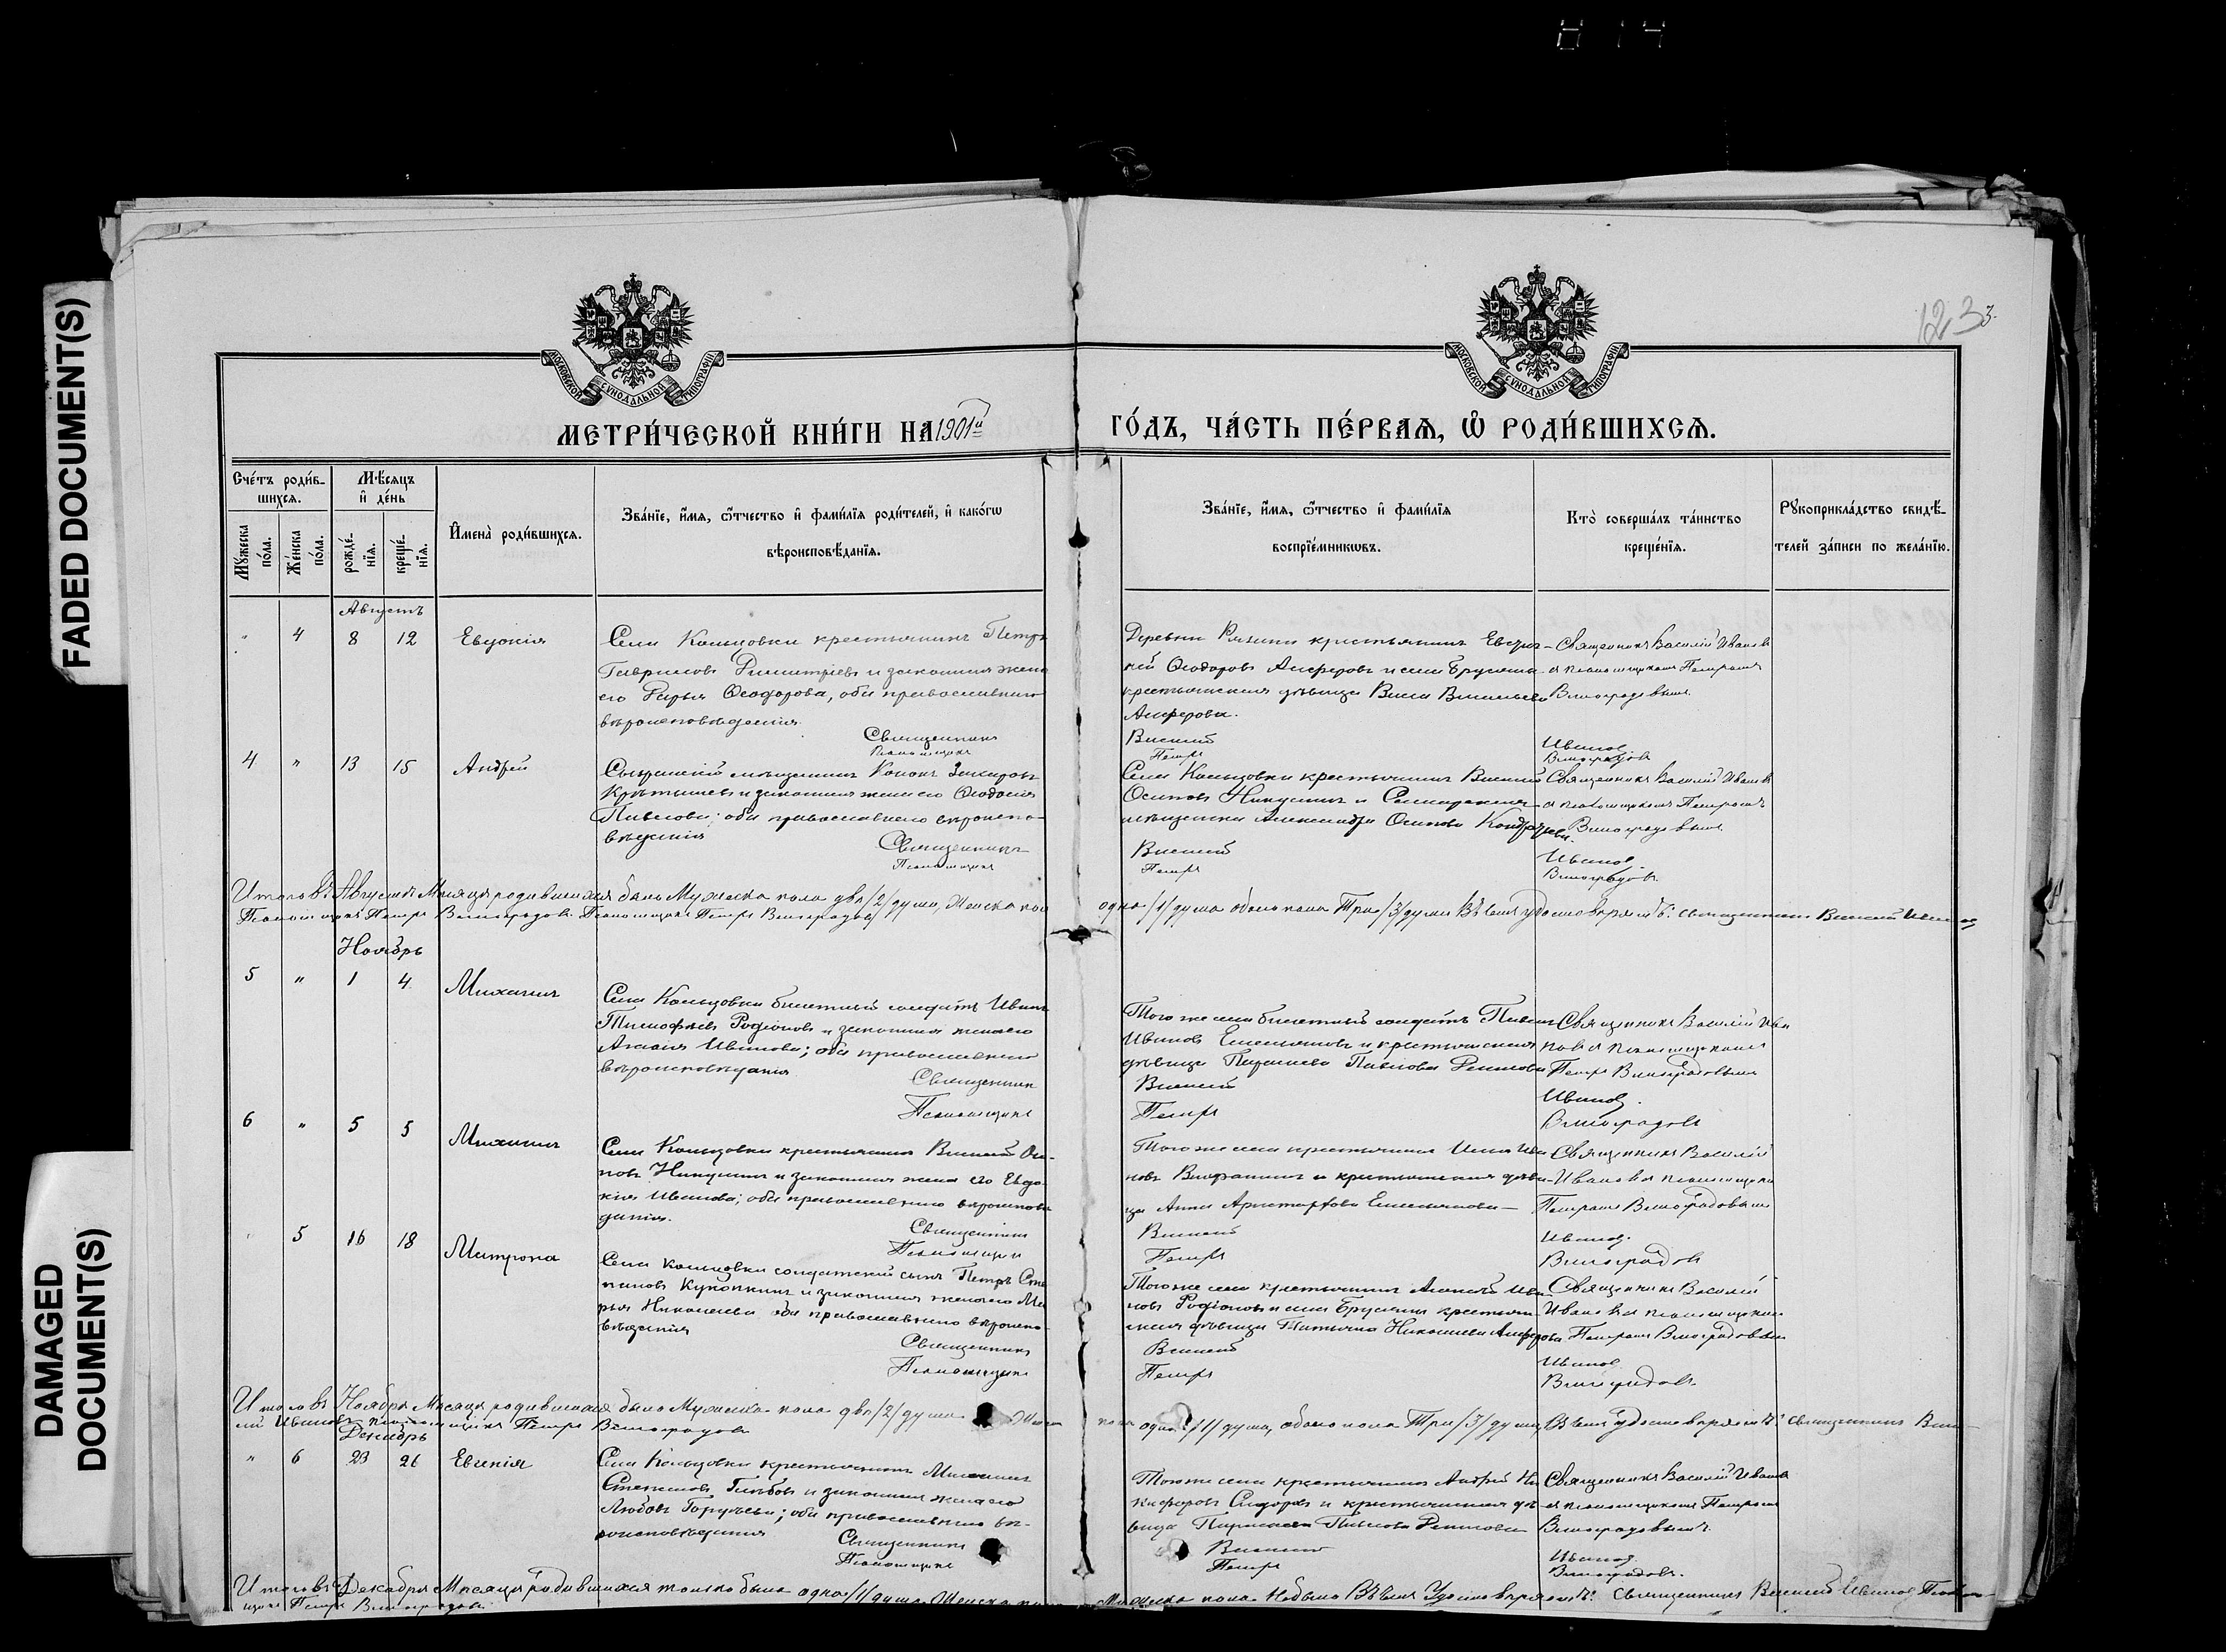 814
FADED DOCUMENT(S)
DAMAGED
DOCUMENT(S)
123
3
МОСКОВСКОЙ СѴНОДАЛЬНОЙ ТИПОГРАФІИ
МОСКОВСКОЙ СѴНОДАЛЬНОЙ ТИПОГРАФІИ
МЕТРИ́ЧЕСКОЙ КНИ́ГИ НА 1901й
ГО́ДЪ, ЧА́СТЬ ПЕ́РВАѦ, Ѽ РОДИ́ВШИХСѦ.
Сче́тъ роди́в-
шихсѧ.
Мꙋ́жеска
по́ла.
Же́нска
по́ла.
Мѣ́сѧцъ
и҆ де́нь
рожде́-
нїѧ.
креще́-
нїѧ.
И҆мена̀ роди́вшихсѧ.
Зва́нїе, и҆́мѧ, ѻ҆́тчество и҆ фами́лїѧ роди́телей, и҆ како́гѡ
вѣроисповѣ́данїѧ.
Зва́нїе, и҆́мѧ, ѻ҆́тчество и҆ фами́лїѧ
воспрїе́мникѡвъ.
Кто̀ соверша́лъ та́инство
креще́нїѧ.
Рꙋкоприкла́дство свидѣ́-
телей за́писи по жела́нїю.
Августъ
" 4 8 12 Евдокія
Села Кольцовки крестьянинъ Петръ
Гавриловъ Димитріевъ и законная жена
его Дарья Ѳеодорова, оба православнаго
вѣроисповѣданія.
Священникъ
Псаломщикъ
Деревни крестьянинъ
ній Ѳеодоровъ Анферовъ и села
крестьянская дѣвица Васильева
Анферова.
Василій
Петръ
Священникъ Василій Ивановъ
съ псаломщикомъ Петромъ
Виноградовымъ.
Ивановъ
Виноградовъ
4 " 13 15 Андрей
мѣщанинъ
и законная жена его Ѳеодосія
Павлова; оба православнаго вѣроиспо-
вѣданія
Священникъ
Псаломщикъ
Села Кольцовки крестьянинъ Василій
Осиповъ Никулинъ и
мѣщанка Александра Осипова
Василій
Петръ
Священникъ Василій Ивановъ
съ псаломщикомъ Петромъ
Виноградовымъ.
Ивановъ.
Виноградовъ.
Итого въ Августѣ Мѣсяцѣ родившихся было Мужеска пола два /2/ душа, Женска пола
одна /1/ душа обоего пола Три /3/ души Въ чемъ удостовѣряемъ: Священникъ Василій Ивановъ
Псаломщикъ Петръ Виноградовъ Псаломщикъ Петръ Виноградовъ
Ноябрь
5 " 1 4 Михаилъ
Села Кольцовки билетный солдатъ Иванъ
Тимофѣевъ Родіоновъ и законная жена его
Иванова; оба православнаго
вѣроисповѣданія
Священникъ
Псаломщикъ
Того же села билетный солдатъ Павелъ
Ивановъ Емельяновъ и крестьянская
дѣвица Параскева Павлова Денисова
Василій
Петръ
Священникъ Василій Ива
новъ съ псаломщикомъ
Петромъ Виноградовымъ
Ивановъ.
Виноградовъ
6 " 5 5 Михаилъ
Села Кольцовки крестьянинъ Василій Оси-
повъ Никулинъ и законная жена его Евдо-
кія Иванова; оба православнаго вѣроисповѣ
данія.
Священникъ
Псаломщикъ
Того же села крестьянинъ Ива
новъ и крестьянская дѣви-
ца Анна Аристархова Емельянова
Василій
Петръ
Священникъ Василій
Ивановъ съ псаломщикомъ
Петромъ Виноградовымъ
Ивановъ.
Виноградовъ
" 5 16 18 Матрона
Села Кольцовки солдатскій сынъ Петръ Сте
пановъ Кукопкинъ и законная жена его Ма
рья Николаева оба православнаго вѣроиспо-
вѣданія
Священникъ
Псаломщикъ
Того же села крестьянинъ Алексѣй Ива
новъ Родіоновъ и села крестьян
ская дѣвица Татьяна Николаева Анферова
Василій
Петръ
Священникъ Василій
Ивановъ съ псаломщикомъ
Петромъ Виноградовымъ
Ивановъ
Виноградовъ
Итого въ Ноябрѣ Мѣсяцѣ родившихся было Мужеска пола два /2/ душа Женска
пола одна /1/ душа, обоего пола Три /3/ души, Въ чемъ удостовѣряемъ: Священникъ Васи-
лій Ивановъ псаломщикъ Петръ Виноградовъ
Декабрь
" 6 23 26 Евгенія
Села Кольцовки крестьянинъ Михаилъ
Степановъ Глѣбовъ и законная жена его
Любовь; оба православнаго вѣ-
роисповѣданія
Священникъ
Псаломщикъ
Того же села крестьянинъ Андрей Ни
кифоровъ Сидоровъ и крестьянская дѣ-
вица Параскева Павлова Денисова
Василій
Петръ
Священникъ Василій Ивановъ
съ псаломщикомъ Петромъ
Виноградовымъ.
Ивановъ.
Виноградовъ.
Итого въ Декабрѣ Мѣсяцѣ родившихся только была одна /1/ душа Женска пола
Мужеска пола Небыло Въ чемъ Удостовѣряемъ: Священникъ Василій Ивановъ Псалом-
щикъ Петръ Виноградовъ.